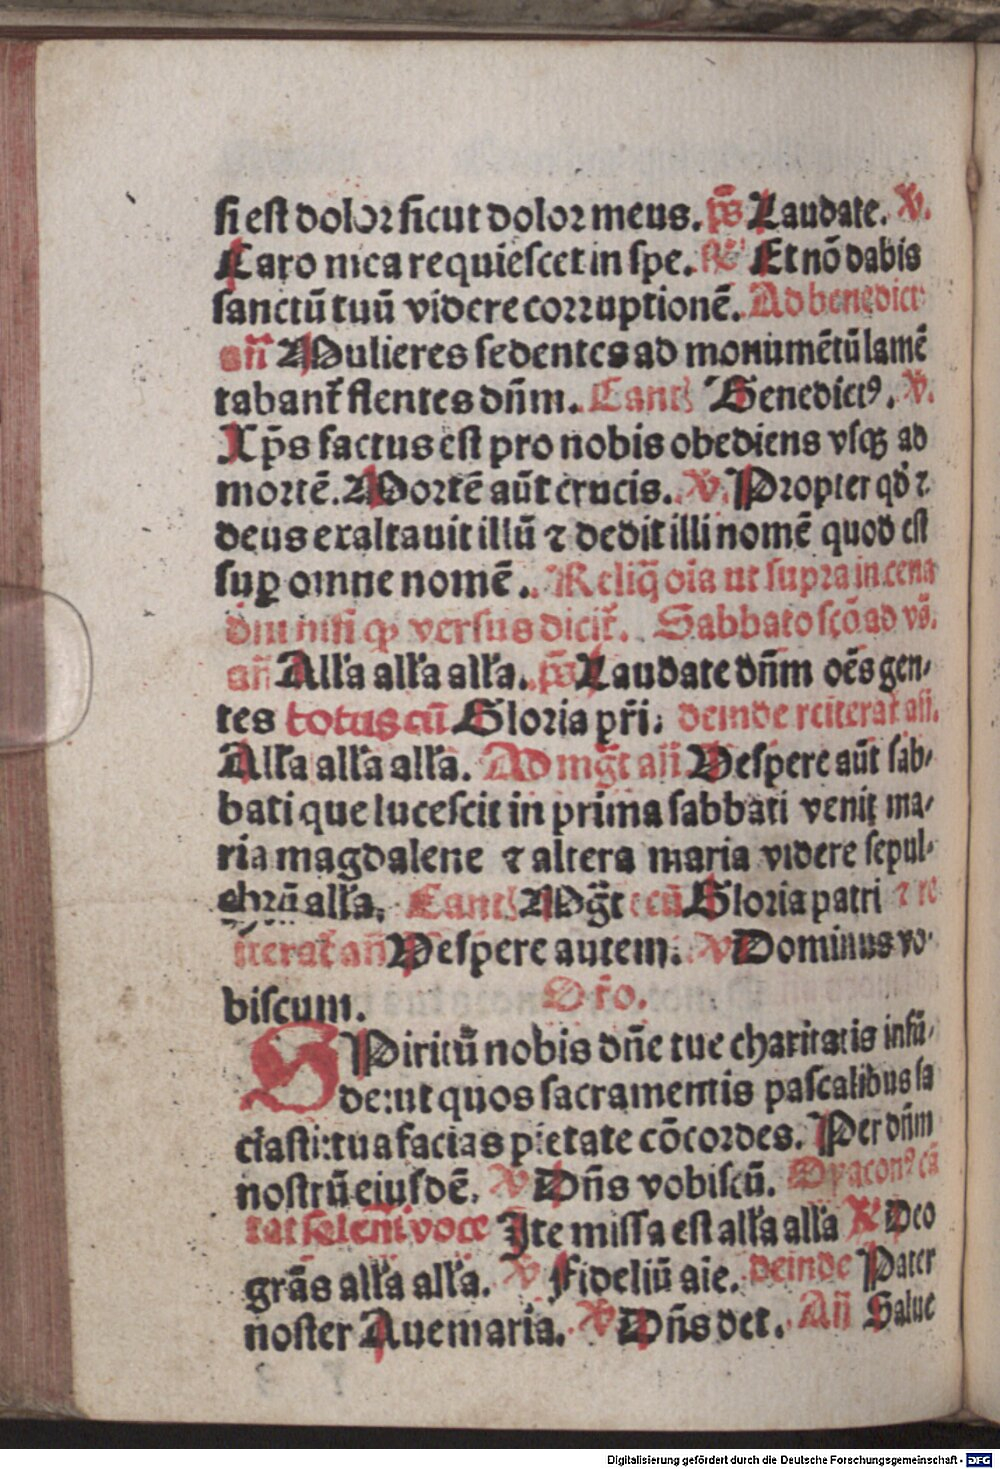 si est dolor sicut dolor meus. ps̄ Laudate. V.
Caro mea requiescet in spe. R̄ Et nō dabis
sanctū tuū videre corruptionē. Ad benedict
an̄ Mulieres sedentes ad monumētū lamē
tabant̄ flentes dn̄m. Cant. Benedictꝰ. V.
Xp̄s factus est pro nobis obediens vsqꝫ ad
mortē. Mortē aūt crucis. V. Propter qđ ⁊
deus exaltauit illū ⁊ dedit illi nomē quod est
suꝑ omne nomē. Reliq̄ oīa ut supra in cena
dn̄i nisi ꝙ versus dicit̄. Sabbato scō ad vs̄.
an̄ All'a all'a all'a. ps̄ Laudate dn̄m oēs gen-
tes totus cū Gloria pr̄i. deinde reiterat̄ an̄.
All'a all'a all'a. Ad mḡt an̄. Vespere aūt sab-
bati que lucescit in prima sabbati venit ma-
ria magdalene ⁊ altera maria videre sepul-
chrū all'a. Cant. Mḡt cū Gloria patri ⁊ re
iterat̄ an̄ Vespere autem. V Dominus vo-
biscum. Or̄o.
SPiritū nobis dn̄e tue charitatis infū-
de: ut quos sacramentis pascalibus sa
ciasti: tua facias pietate cōcordes. Per dn̄m
nostrū eiusdē. V Dn̄s vobiscū. Dyaconꝰ cā
tat solēni voce Ite missa est all'a all'a R Deo
grās all'a all'a. V Fideliū aīe. deinde Pater
noster Aue maria. V Dn̄s det. An̄ Salue
Digitalisierung gefördert durch die Deutsche Forschungsgemeinschaft - DFG